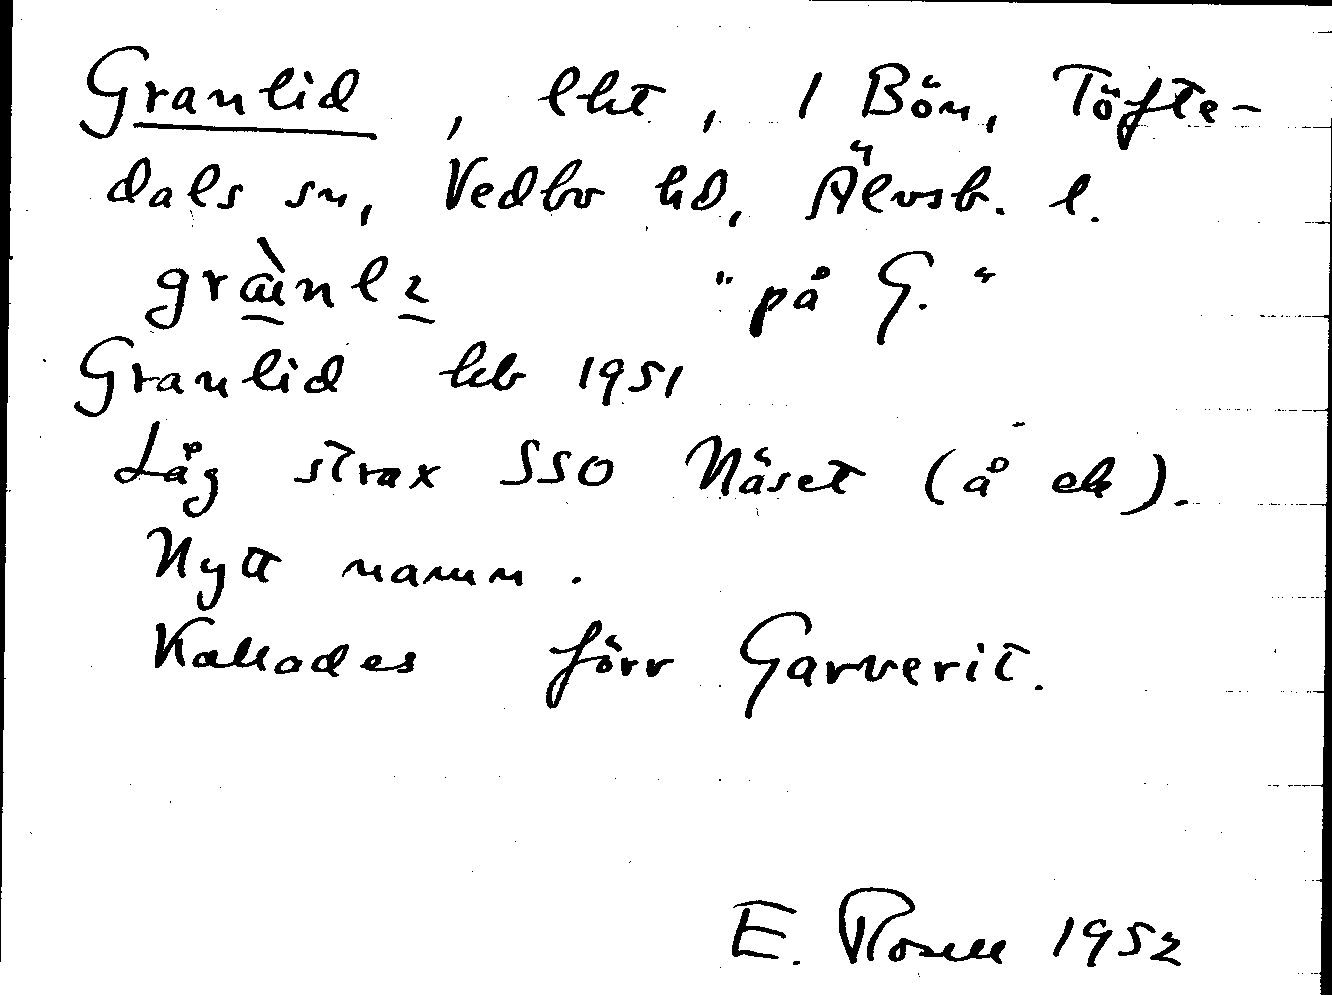 Granlid, lht, 1 Bön, Töfte-
dals sn, Vedbo hd, Älvsb. l.
"på G."
Granlid kb 1951
Låg strax SSO Näset (å ek).
Nytt namn.
Kallades förr Garverit.
E. Rosell 1952